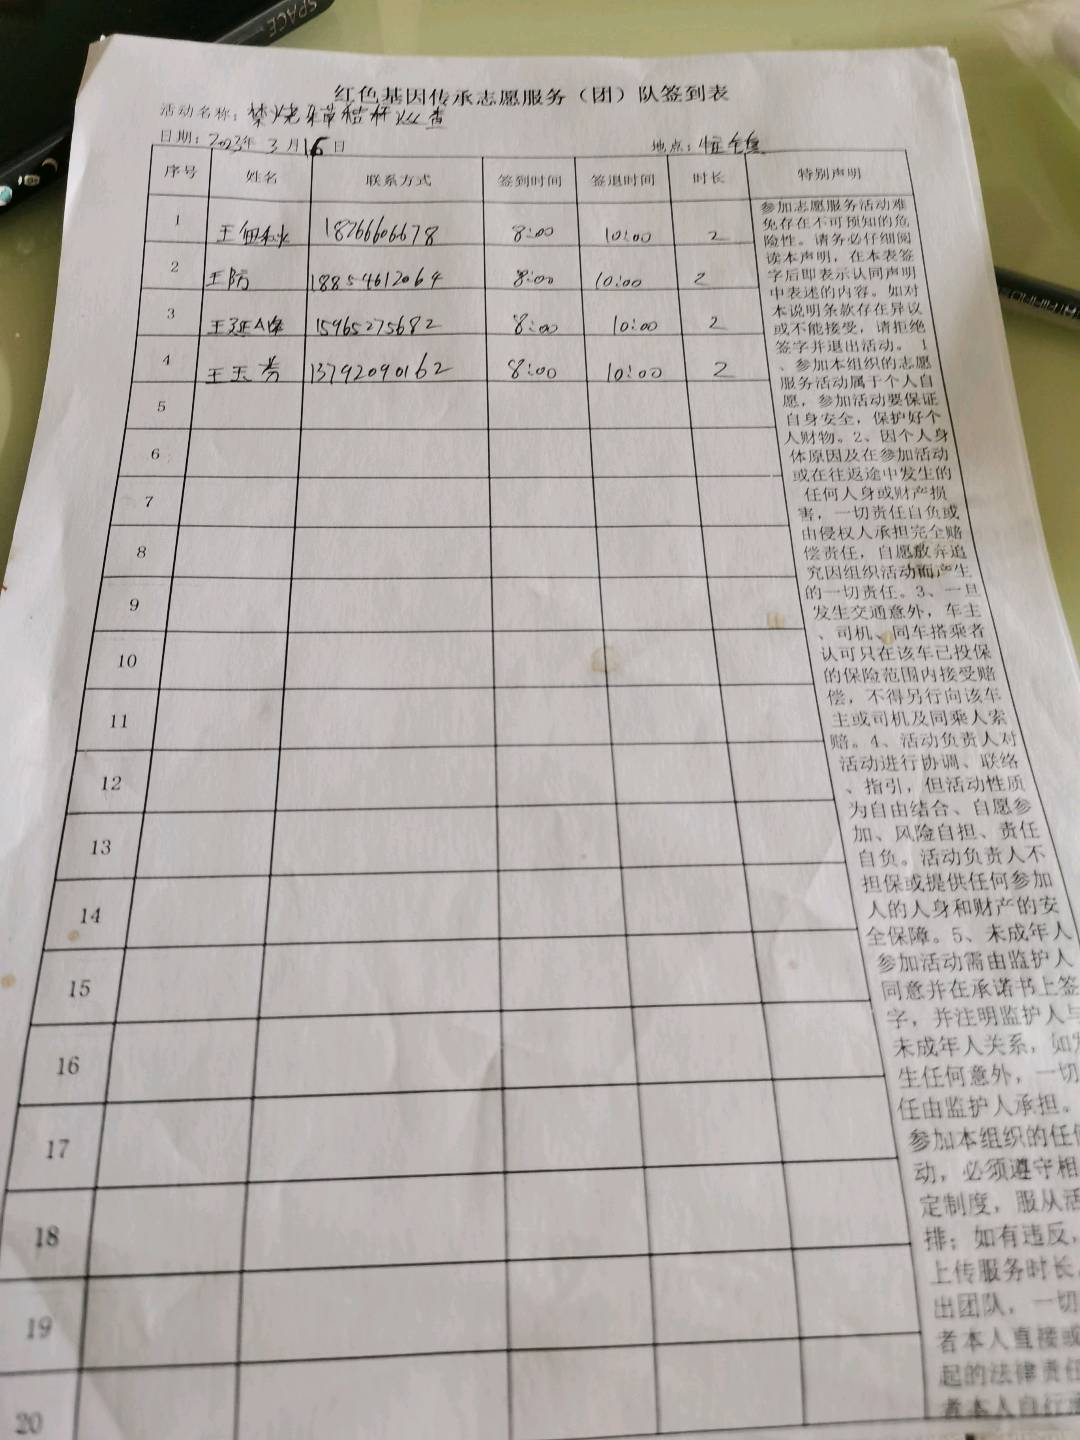 SPACE
红色基因传承志愿服务（团）队签到表
活动名称：焚烧杂草秸秆巡查
日期：2023年 3 月 16 日 地点：
序号 姓名 联系方式 签到时间 签退时间 时长 特别声明
1 王 18766606678 8:00 10:00 2
2 王防 18854612064 8:00 10:00 2
3 王延 15965275682 8:00 10:00 2
4 王玉芳 13792090162 8:00 10:00 2
5
6
7
8
9
10
11
12
13
14
15
16
17
18
19
20
参加志愿服务活动难
免存在不可预知的危
险性。请务必仔细阅
读本声明，在本表签
字后即表示认同声明
中表述的内容。如对
本说明条款存在异议
或不能接受，请拒绝
签字并退出活动。 1
、参加本组织的志愿
服务活动属于个人自
愿，参加活动要保证
自身安全，保护好个
人财物。2、因个人身
体原因及在参加活动
或在往返途中发生的
任何人身或财产损
害，一切责任自负或
由侵权人承担完全赔
偿责任，自愿放弃追
究因组织活动而产生
的一切责任。3、一旦
发生交通意外，车主
、司机、同车搭乘者
认可只在该车已投保
的保险范围内接受赔
偿，不得另行向该车
主或司机及同乘人索
赔。4、活动负责人对
活动进行协调、联络
、指引，但活动性质
为自由结合、自愿参
加、风险自担、责任
自负。活动负责人不
担保或提供任何参加
人的人身和财产的安
全保障。5、未成年人
参加活动需由监护人
同意并在承诺书上签
字，并注明监护人与
未成年人关系，如
生任何意外，一切
任由监护人承担。
参加本组织的任
动，必须遵守相
定制度，服从活
排；如有违反，
上传服务时长
出团队，一切
者本人直接或
起的法律责任
者本人自行